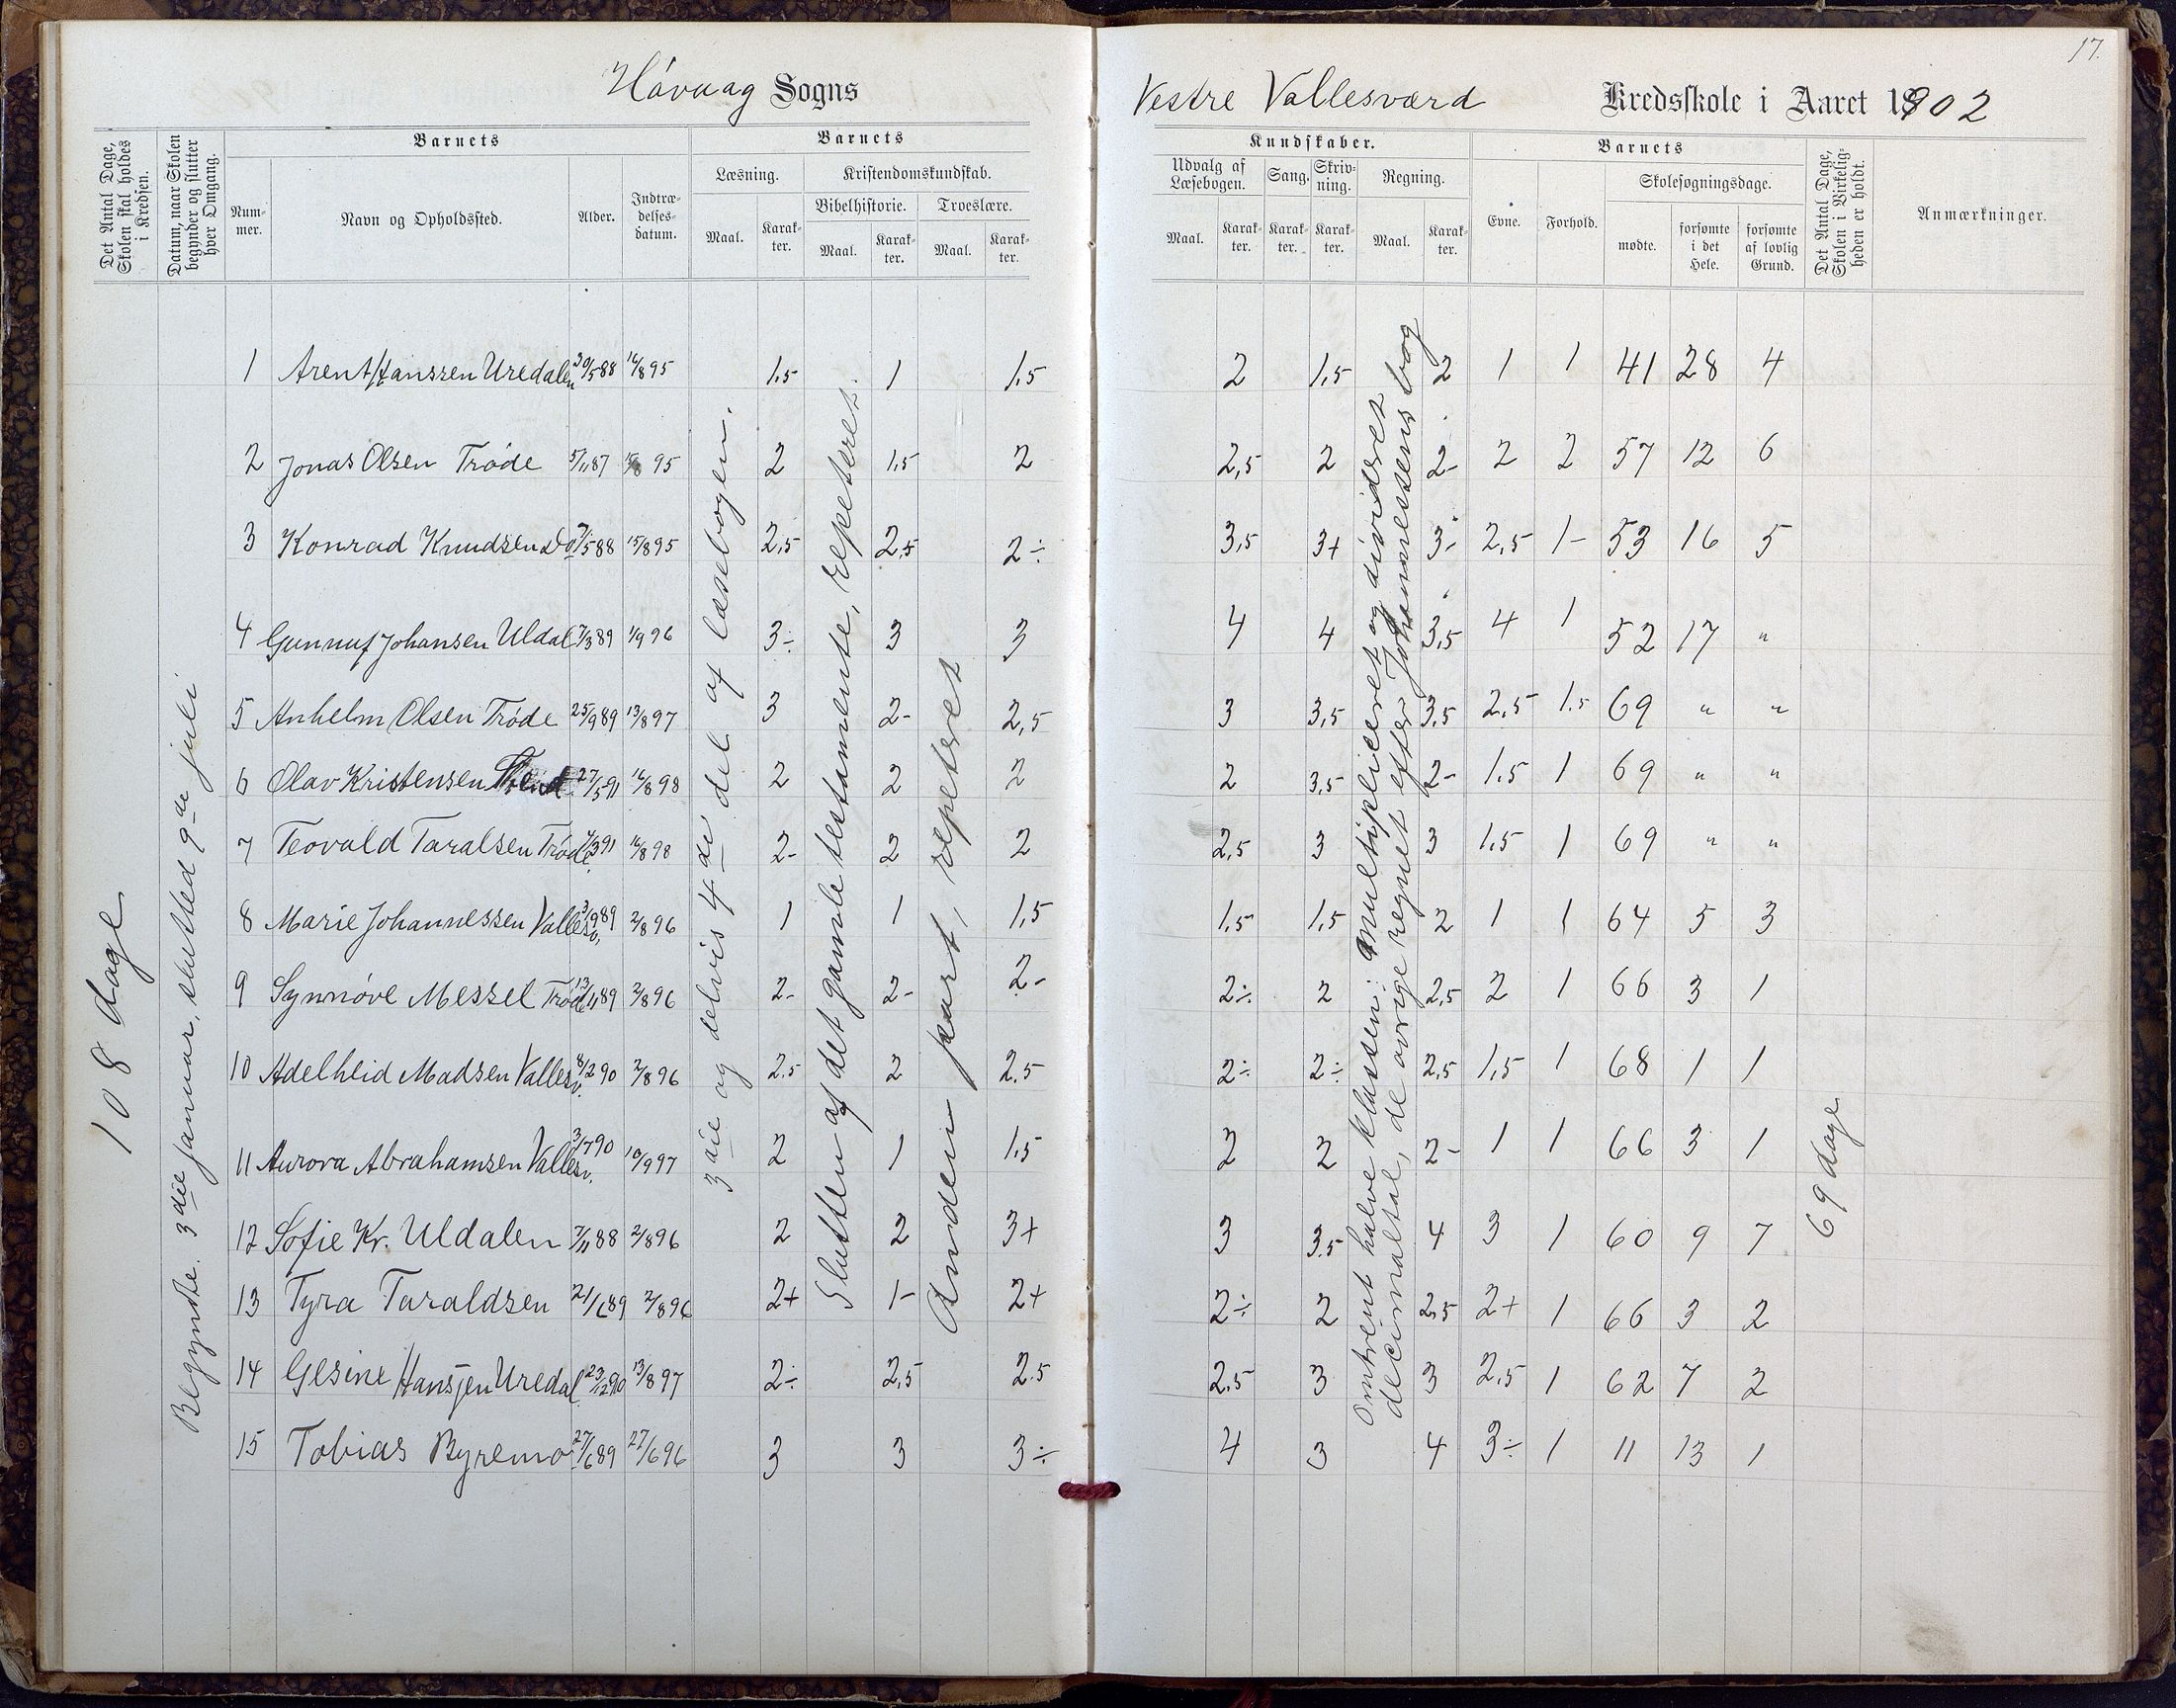 17.
Håvaag Sogns
Vestre Vallesværd Kredsskole i Aaret 1902
Det Antal Dage, Skolen skal holdes i Kredsen.
Datum, naar Skolen begynder og slutter hver Omgang.
Barnets
Num-mer.
Navn og Opholdssted.
Alder.
Indtræ-delses-datum.
Barnets
Læsning.
Maal.
Karak-ter.
Kristendomskundskab.
Bibelhistorie.
Maal.
Karak-ter.
Troeslære.
Maal.
Karak-ter.
Kundskaber.
Udvalg af Læsebogen.
Maal.
Karak-ter.
Sang.
Karak-ter.
Skriv-ning.
Karak-ter.
Regning.
Maal.
Karak-ter.
Barnets
Evne.
Forhold.
Skolesøgningsdage.
mødte.
forsømte i det Hele.
forsømte af lovlig Grund.
Det Antal Dage, Skolen i Virkelig-heden er holdt.
Anmærkninger.
108 dage
Begyndte 3die januar, slutted 9de juli
3die og delvis 4de del af læsebogen.
Slutten af det gamle testamente, repeteret.
Anden part, repeteret
Omtrent halve klassen: multipliceret og divideret
decimaltal, de øvrige regnet efter Johannessens bog
69 dage
1 Arent Hanssen Uredalen 30/5 88 16/8 95 1,5 1 1,5 2 1,5 2 1 1 41 28 4
2 Jonas Olsen Trøde 5/11 87 95 2 1,5 2 2,5 2 2- 2 2 57 12 6
3 Konrad Knudsen do 7/5 88 15/8 95 2,5 2,5 2÷ 3,5 3+ 3- 2,5 1- 53 16 5
4 Gunnuf Johansen Uldal 7/3 89 1/9 96 3÷ 3 3 4 4 3,5 4 1 52 17 "
5 Anhelm Olsen Trøde 25/9 89 13/8 97 3 2- 2,5 3 3,5 3,5 2,5 1.5 69 " "
6 Olav Kristensen 27/5 91 16/8 98 2 2 2 2 3,5 2- 1.5 1 69 " "
7 Teovald Taralsen Trøde 4/3 91 16/8 98 2- 2 2 2,5 3 3 1,5 1 69 " "
8 Marie Johannessen Vallesv. 3/9 89 2/8 96 1 1 1,5 1,5 1,5 2 1 1 64 5 3
9 Synnøve Messel Trøde 13/4 89 2/8 96 2- 2- 2- 2÷ 2 2,5 2 1 66 3 1
10 Adelheid Madsen Vallesv. 8/2 90 2/8 96 2.5 2 2,5 2÷ 2÷ 2,5 1,5 1 68 1 1
11 Aurora Abrahamsen Vallesv. 3/7 90 10/9 97 2 1 1,5 2 2 2- 1 1 66 3 1
12 Sofie Kr. Uldalen 7/11 88 2/8 96 2 2 3+ 3 3.5 4 3 1 60 9 7
13 Tyra Taraldsen 21/6 89 2/8 96 2+ 1- 2+ 2÷ 2 2,5 2+ 1 66 3 2
14 Gesine Hansen Uredal 23/12 90 13/8 97 2÷ 2,5 2.5 2,5 3 3 2,5 1 62 7 2
15 Tobias Byremo 27/6 89 27/6 96 3 3 3÷ 4 3 4 3÷ 1 11 13 1